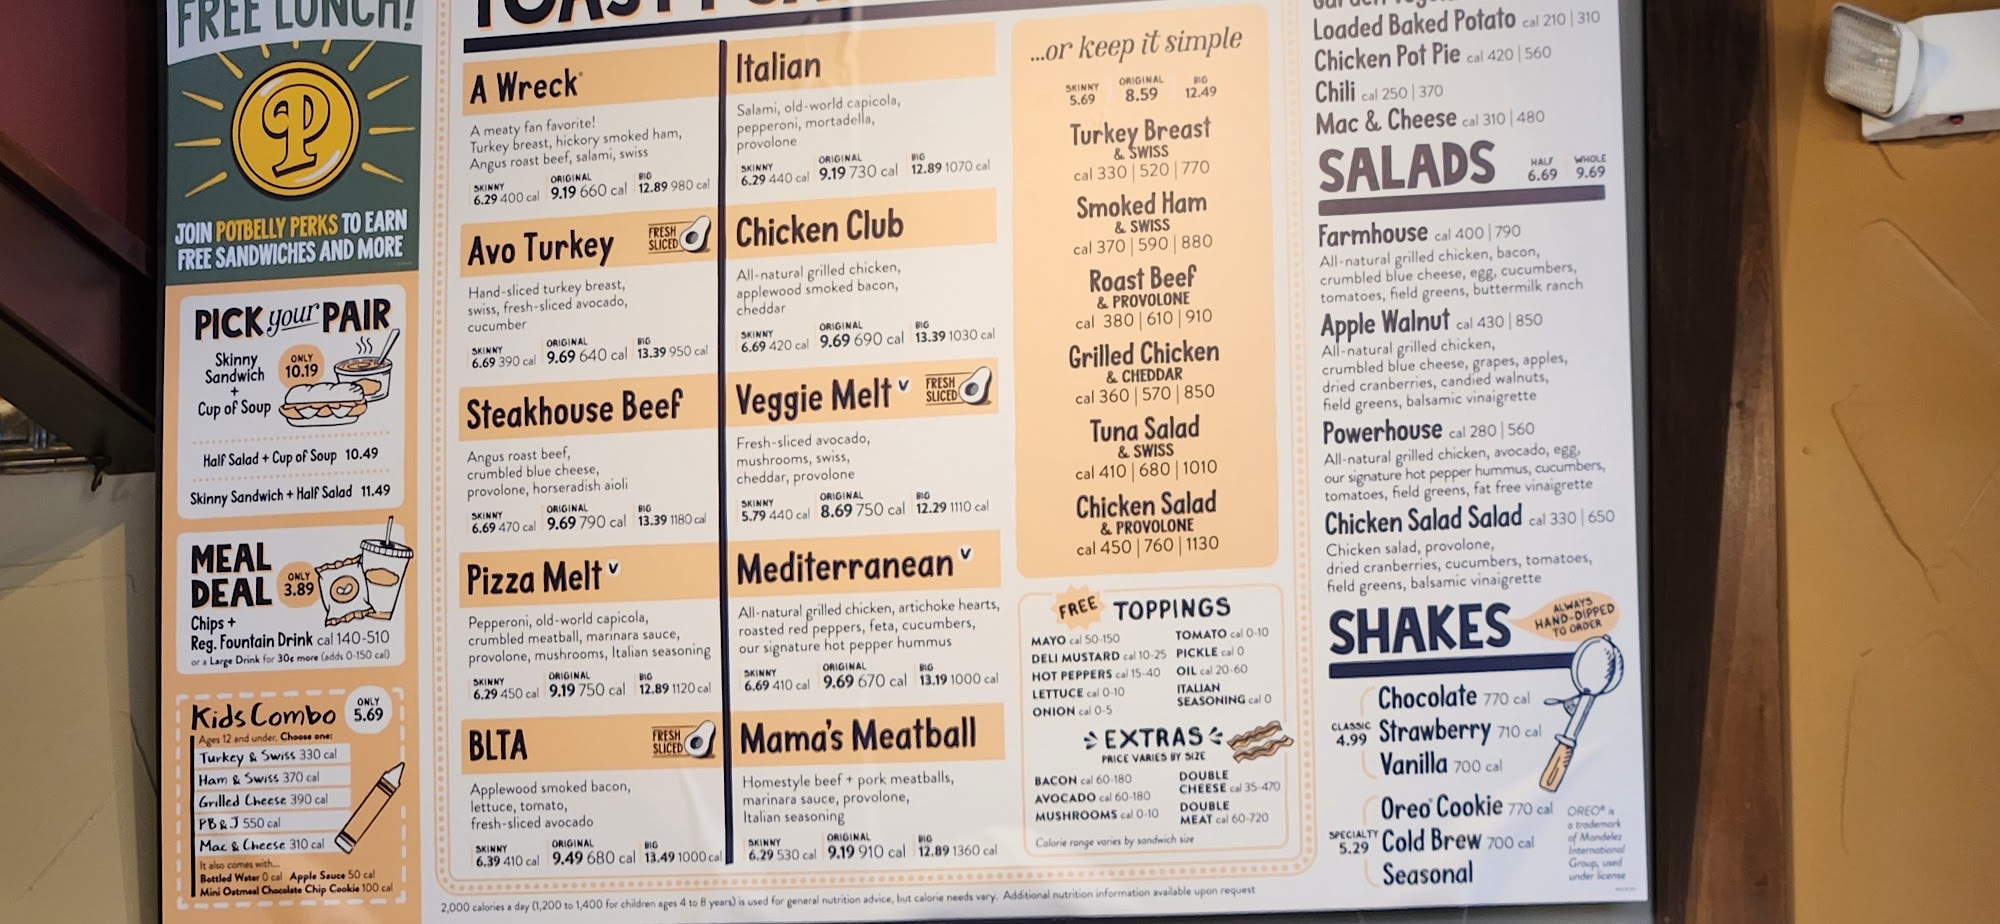 FREE LUNCH!
P
JOIN POTBELLY PERKS TO EARN
FREE SANDWICHES AND MORE
PICK your PAIR
Skinny
Sandwich
+
Cup of Soup
ONLY
10.19
Half Salad + Cup of Soup 10.49
Skinny Sandwich + Half Salad 11.49
MEAL
DEAL
ONLY
3.89
Chips +
Reg. Fountain Drink cal 140-510
or a Large Drink for 30¢ more (adds 0-150 cal)
Kids Combo
ONLY
5.69
Ages 12 and under. Choose one:
Turkey & Swiss 330 cal
Ham & Swiss 370 cal
Grilled Cheese 390 cal
PB & J 550 cal
Mac & Cheese 310 cal
It also comes with...
Bottled Water 0 cal Apple Sauce 50 cal
Mini Oatmeal Chocolate Chip Cookie 100 cal
A Wreck®
A meaty fan favorite!
Turkey breast, hickory smoked ham,
Angus roast beef, salami, swiss
SKINNY ORIGINAL BIG
6.29 400 cal 9.19 660 cal 12.89 980 cal
Avo Turkey
FRESH
SLICED
Hand-sliced turkey breast,
swiss, fresh-sliced avocado,
cucumber
SKINNY ORIGINAL BIG
6.69 390 cal 9.69 640 cal 13.39 950 cal
Steakhouse Beef
Angus roast beef,
crumbled blue cheese,
provolone, horseradish aioli
SKINNY ORIGINAL BIG
6.69 470 cal 9.69 790 cal 13.39 1180 cal
Pizza Melt V
Pepperoni, old-world capicola,
crumbled meatball, marinara sauce,
provolone, mushrooms, Italian seasoning
SKINNY ORIGINAL BIG
6.29 450 cal 9.19 750 cal 12.89 1120 cal
BLTA
FRESH
SLICED
Applewood smoked bacon,
lettuce, tomato,
fresh-sliced avocado
SKINNY ORIGINAL BIG
6.39 410 cal 9.49 680 cal 13.49 1000 cal
Italian
Salami, old-world capicola,
pepperoni, mortadella,
provolone
SKINNY ORIGINAL BIG
6.29 440 cal 9.19 730 cal 12.89 1070 cal
Chicken Club
All-natural grilled chicken,
applewood smoked bacon,
cheddar
SKINNY ORIGINAL BIG
6.69 420 cal 9.69 690 cal 13.39 1030 cal
Veggie Melt V
FRESH
SLICED
Fresh-sliced avocado,
mushrooms, swiss,
cheddar, provolone
SKINNY ORIGINAL BIG
5.79 440 cal 8.69 750 cal 12.29 1110 cal
Mediterranean V
All-natural grilled chicken, artichoke hearts,
roasted red peppers, feta, cucumbers,
our signature hot pepper hummus
SKINNY ORIGINAL BIG
6.69 410 cal 9.69 670 cal 13.19 1000 cal
Mama's Meatball
Homestyle beef + pork meatballs,
marinara sauce, provolone,
Italian seasoning
SKINNY ORIGINAL BIG
6.29 530 cal 9.19 910 cal 12.89 1360 cal
...or keep it simple
SKINNY ORIGINAL BIG
5.69 8.59 12.49
Turkey Breast
& SWISS
cal 330 | 520 | 770
Smoked Ham
& SWISS
cal 370 | 590 | 880
Roast Beef
& PROVOLONE
cal 380 | 610 | 910
Grilled Chicken
& CHEDDAR
cal 360 | 570 | 850
Tuna Salad
& SWISS
cal 410 | 680 | 1010
Chicken Salad
& PROVOLONE
cal 450 | 760 | 1130
FREE TOPPINGS
MAYO cal 50-150
DELI MUSTARD cal 10-25
HOT PEPPERS cal 15-40
LETTUCE cal 0-10
ONION cal 0-5
TOMATO cal 0-10
PICKLE cal 0
OIL cal 20-60
ITALIAN
SEASONING cal 0
EXTRAS
PRICE VARIES BY SIZE
BACON cal 60-180
AVOCADO cal 60-180
MUSHROOMS cal 0-10
DOUBLE
CHEESE cal 35-470
DOUBLE
MEAT cal 60-720
Calorie range varies by sandwich size
2,000 calories a day (1,200 to 1,400 for children ages 4 to 8 years) is used for general nutrition advice, but calorie needs vary. Additional nutrition information available upon request
Loaded Baked Potato cal 210 | 310
Chicken Pot Pie cal 420 | 560
Chili cal 250 | 370
Mac & Cheese cal 310 | 480
SALADS
HALF WHOLE
6.69 9.69
Farmhouse cal 400 | 790
All-natural grilled chicken, bacon,
crumbled blue cheese, egg, cucumbers,
tomatoes, field greens, buttermilk ranch
Apple Walnut cal 430 | 850
All-natural grilled chicken,
crumbled blue cheese, grapes, apples,
dried cranberries, candied walnuts,
field greens, balsamic vinaigrette
Powerhouse cal 280 | 560
All-natural grilled chicken, avocado, egg,
our signature hot pepper hummus, cucumbers,
tomatoes, field greens, fat free vinaigrette
Chicken Salad Salad cal 330 | 650
Chicken salad, provolone,
dried cranberries, cucumbers, tomatoes,
field greens, balsamic vinaigrette
SHAKES
ALWAYS
HAND-DIPPED
TO ORDER
CLASSIC
4.99
Chocolate 770 cal
Strawberry 710 cal
Vanilla 700 cal
SPECIALTY
5.29
Oreo® Cookie 770 cal
Cold Brew 700 cal
Seasonal
OREO® is
a trademark
of Mondelez
International
Group, used
under license